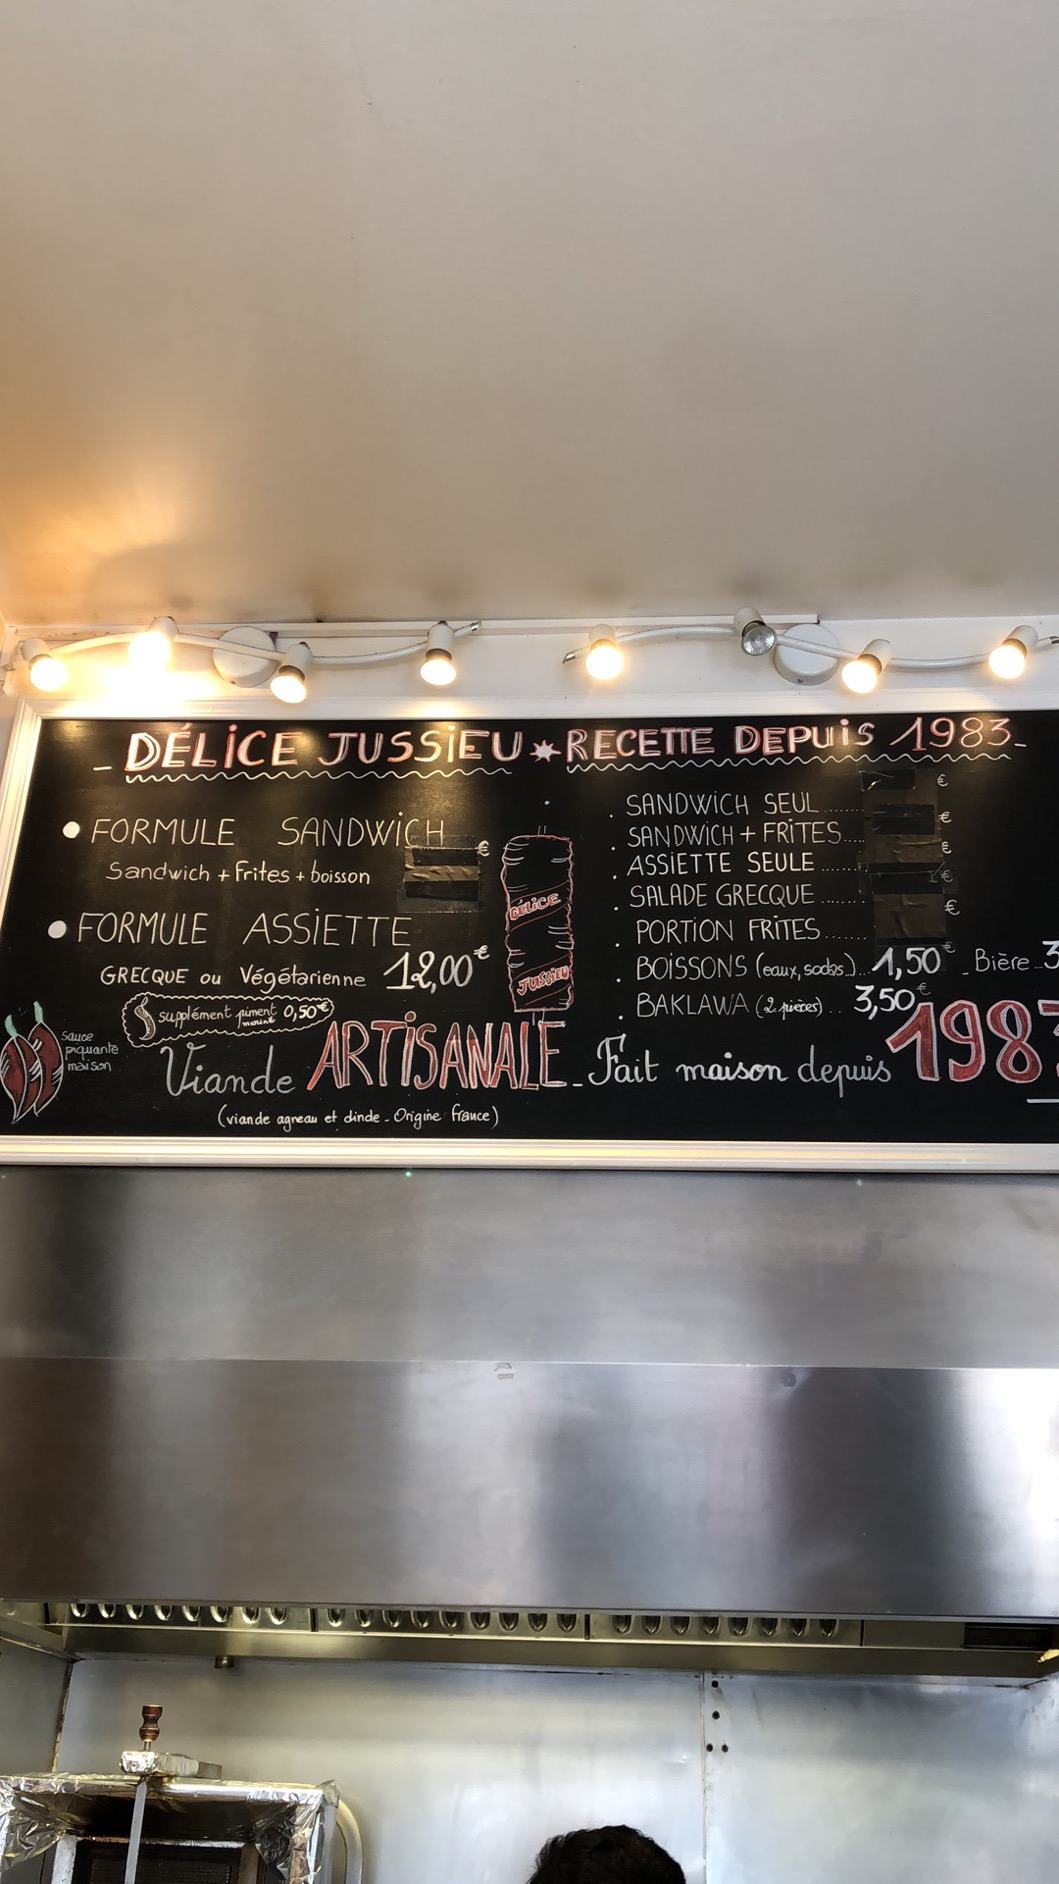 DÉLICE JUSSIEU ✷ RECETTE DEPUIS 1983
FORMULE SANDWICH €
Sandwich + Frites + boisson
FORMULE ASSIETTE
GRECQUE ou Végétarienne 12,00€
supplément piment mariné 0,50€
Sauce
piquante
maison
DÉLICE
JUSSIEU
€
. SANDWICH SEUL....... €
. SANDWICH + FRITES..... €
. ASSIETTE SEULE ....... €
. SALADE GRECQUE ....... €
. PORTION FRITES.......
. BOISSONS (eaux, sodas)... 1,50€ - Bière .. 3
. BAKLAWA (2 pièces) .. 3,50€
Viande ARTISANALE - Fait maison depuis 1983
(viande agneau et dinde - Origine France)